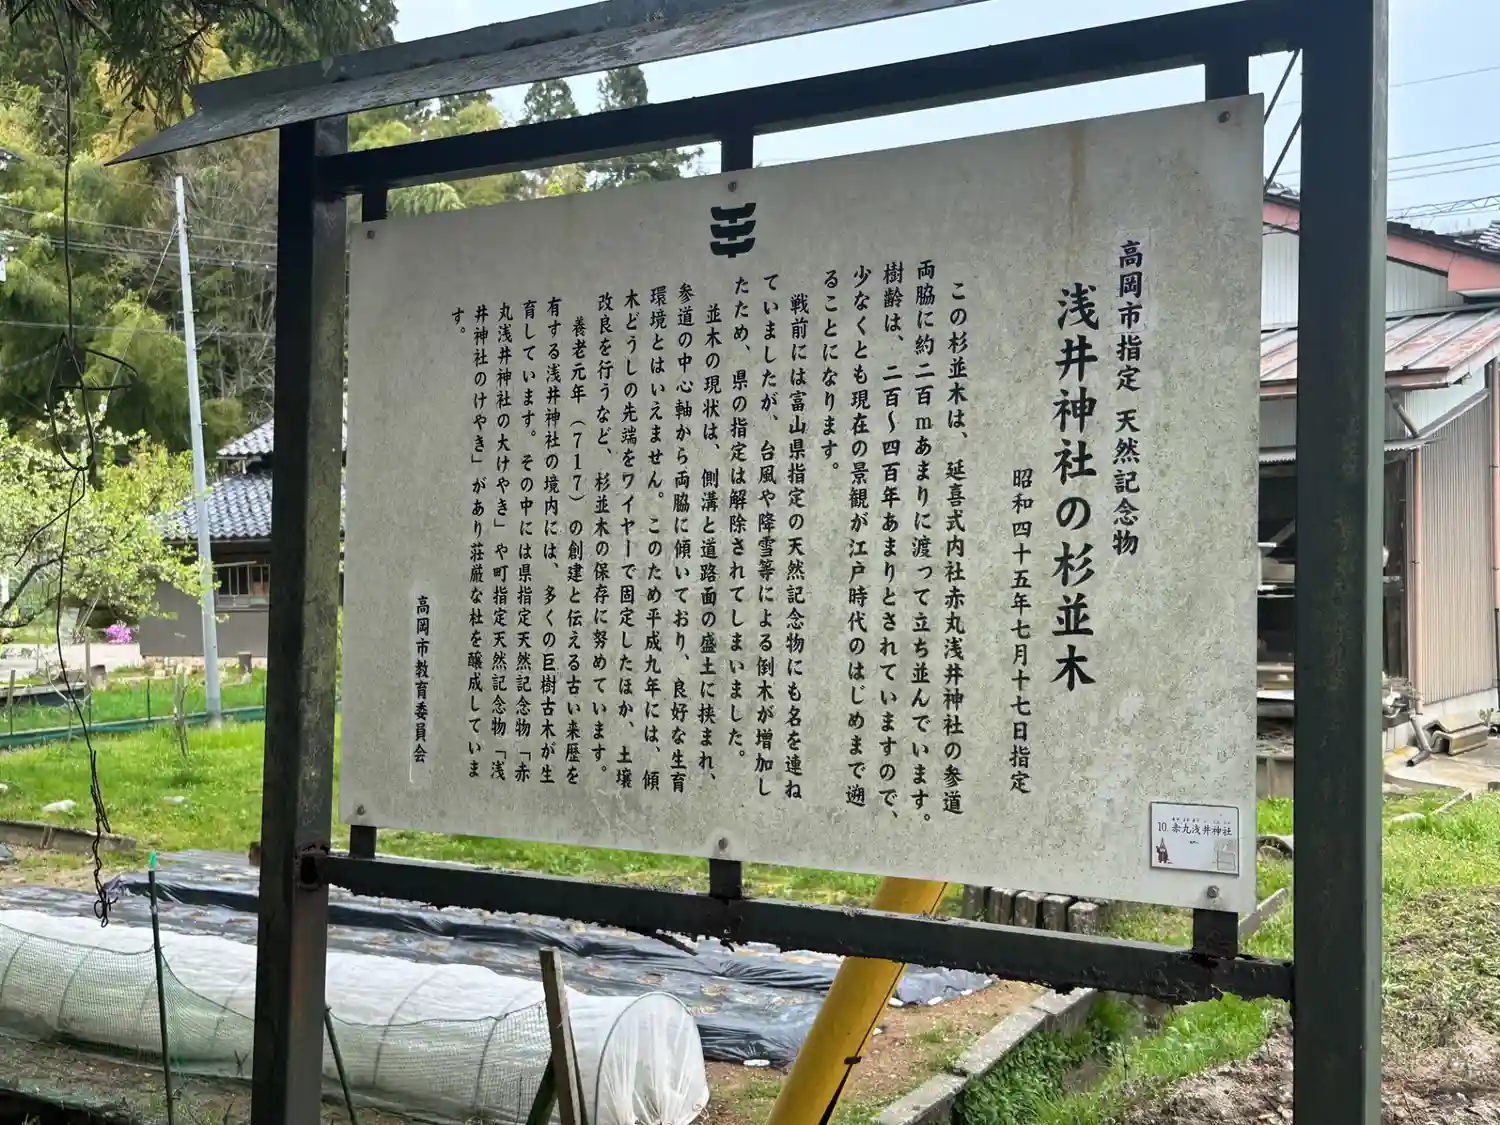 高岡市指定 天然記念物
浅井神社の杉並木
昭和四十五年七月十七日指定
この杉並木は、延喜式内社赤丸浅井神社の参道
両脇に約二百mあまりに渡って立ち並んでいます。
樹齢は、二百〜四百年あまりとされていますので、
少なくとも現在の景観が江戸時代のはじめまで遡
ることになります。
戦前には富山県指定の天然記念物にも名を連ね
ていましたが、台風や降雪等による倒木が増加し
たため、県の指定は解除されてしまいました。
並木の現状は、側溝と道路面の盛土に挟まれ、
参道の中心軸から両脇に傾いており、良好な生育
環境とはいえません。このため平成九年には、傾
木どうしの先端をワイヤーで固定したほか、土壌
改良を行うなど、杉並木の保存に努めています。
養老元年（717）の創建と伝える古い来歴を
有する浅井神社の境内には、多くの巨樹古木が生
育しています。その中には県指定天然記念物「赤
丸浅井神社の大けやき」や町指定天然記念物「浅
井神社のけやき」があり荘厳な杜を醸成していま
す。
高岡市教育委員会
10. 赤丸浅井神社